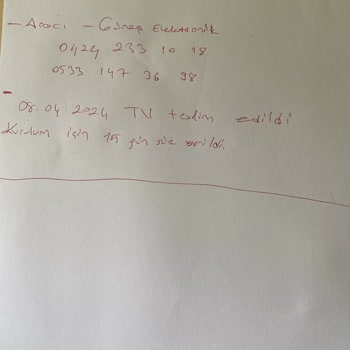 - Aracı - Güneş Elektronik
0424 233 10 18
0533 147 36 98
-
08.04.2024 TV teslim edildi.
Kurulum için 15 gün süre verildi.